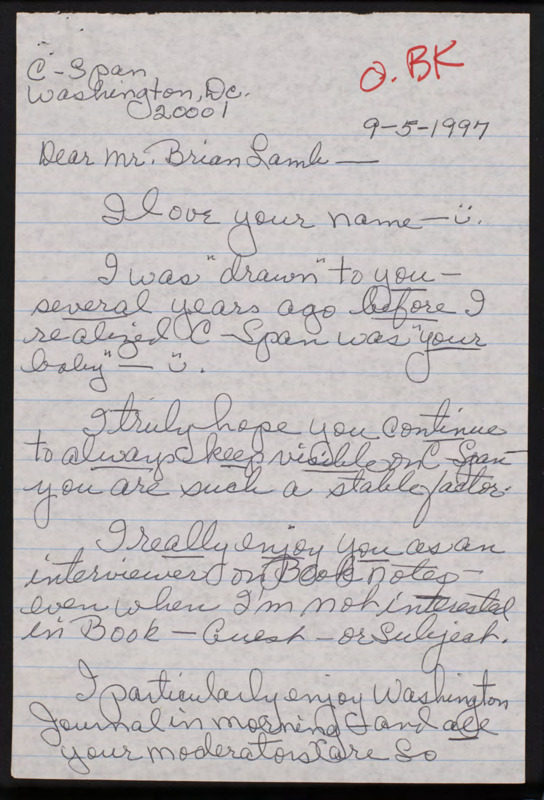 O. BK
C-Span
Washington, Dc.
20001
9-5-1997
Dear Mr. Brian Lamb —
I love your name — ü.
I was "drawn" to you —
several years ago before I
realized C-Span was "your
baby" — ü.
I truly hope you continue
to always keep visible on C Span
you are such a stable factor.
I really enjoy you as an
interviewer on Book notes —
even when I'm not interested
in Book — Guest — or Subject.
I particularly enjoy Washington
Journal in morning and all
your moderators are so